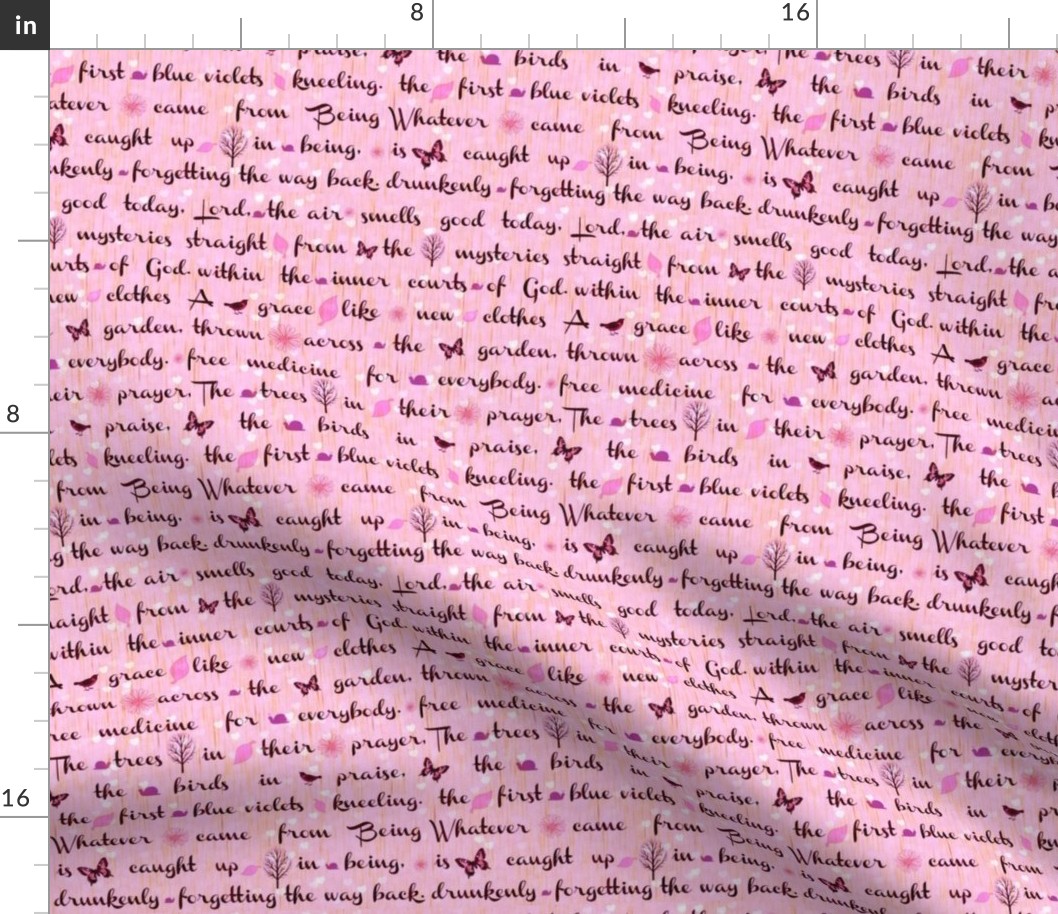 in
8
16
praise, the birds in praise, the birds in p
first blue violets kneeling. the first blue violets kneeling. the first blue violets
came from Being Whatever came from Being Whatever came from
caught up in being. is caught up in being. is caught up in
forgetting the way back. drunkenly forgetting the way back. drunkenly forgetting the way
good today. Lord, the air smells good today. Lord, the air smells good today. Lord, the
mysteries straight from the mysteries straight from the mysteries straight
of God. within the inner courts of God. within the inner courts of God. within the
new clothes A grace like new clothes A grace like new clothes A grace
garden, thrown across the garden, thrown across the garden, thrown
everybody. free medicine for everybody. free medicine for everybody. free
prayer, The trees in their prayer, The trees in their prayer, The trees
8
praise, the birds in praise, the birds in praise, the
kneeling. the first blue violets kneeling. the first blue violets kneeling. the first
from Being Whatever came from Being Whatever came from Being Whatever
in being. is caught up in being. is caught up in being. is
the way back. drunkenly forgetting the way back. drunkenly forgetting the way back. drunkenly
the air smells good today. Lord, the air smells good today. Lord, the air smells good
straight from the mysteries straight from the mysteries straight from the
within the inner courts of God. within the inner courts of God. within the inner courts of
A grace like new clothes A grace like new clothes A grace like new
thrown across the garden, thrown across the garden, thrown across the
free medicine for everybody. free medicine for everybody. free medicine for
The trees in their prayer, The trees in their prayer, The trees in their
16
the birds in praise, the birds in praise, the birds in
the first blue violets kneeling. the first blue violets kneeling. the first blue violets
Whatever came from Being Whatever came from Being Whatever came from
is caught up in being. is caught up in being. is caught up in
drunkenly forgetting the way back. drunkenly forgetting the way back. drunkenly